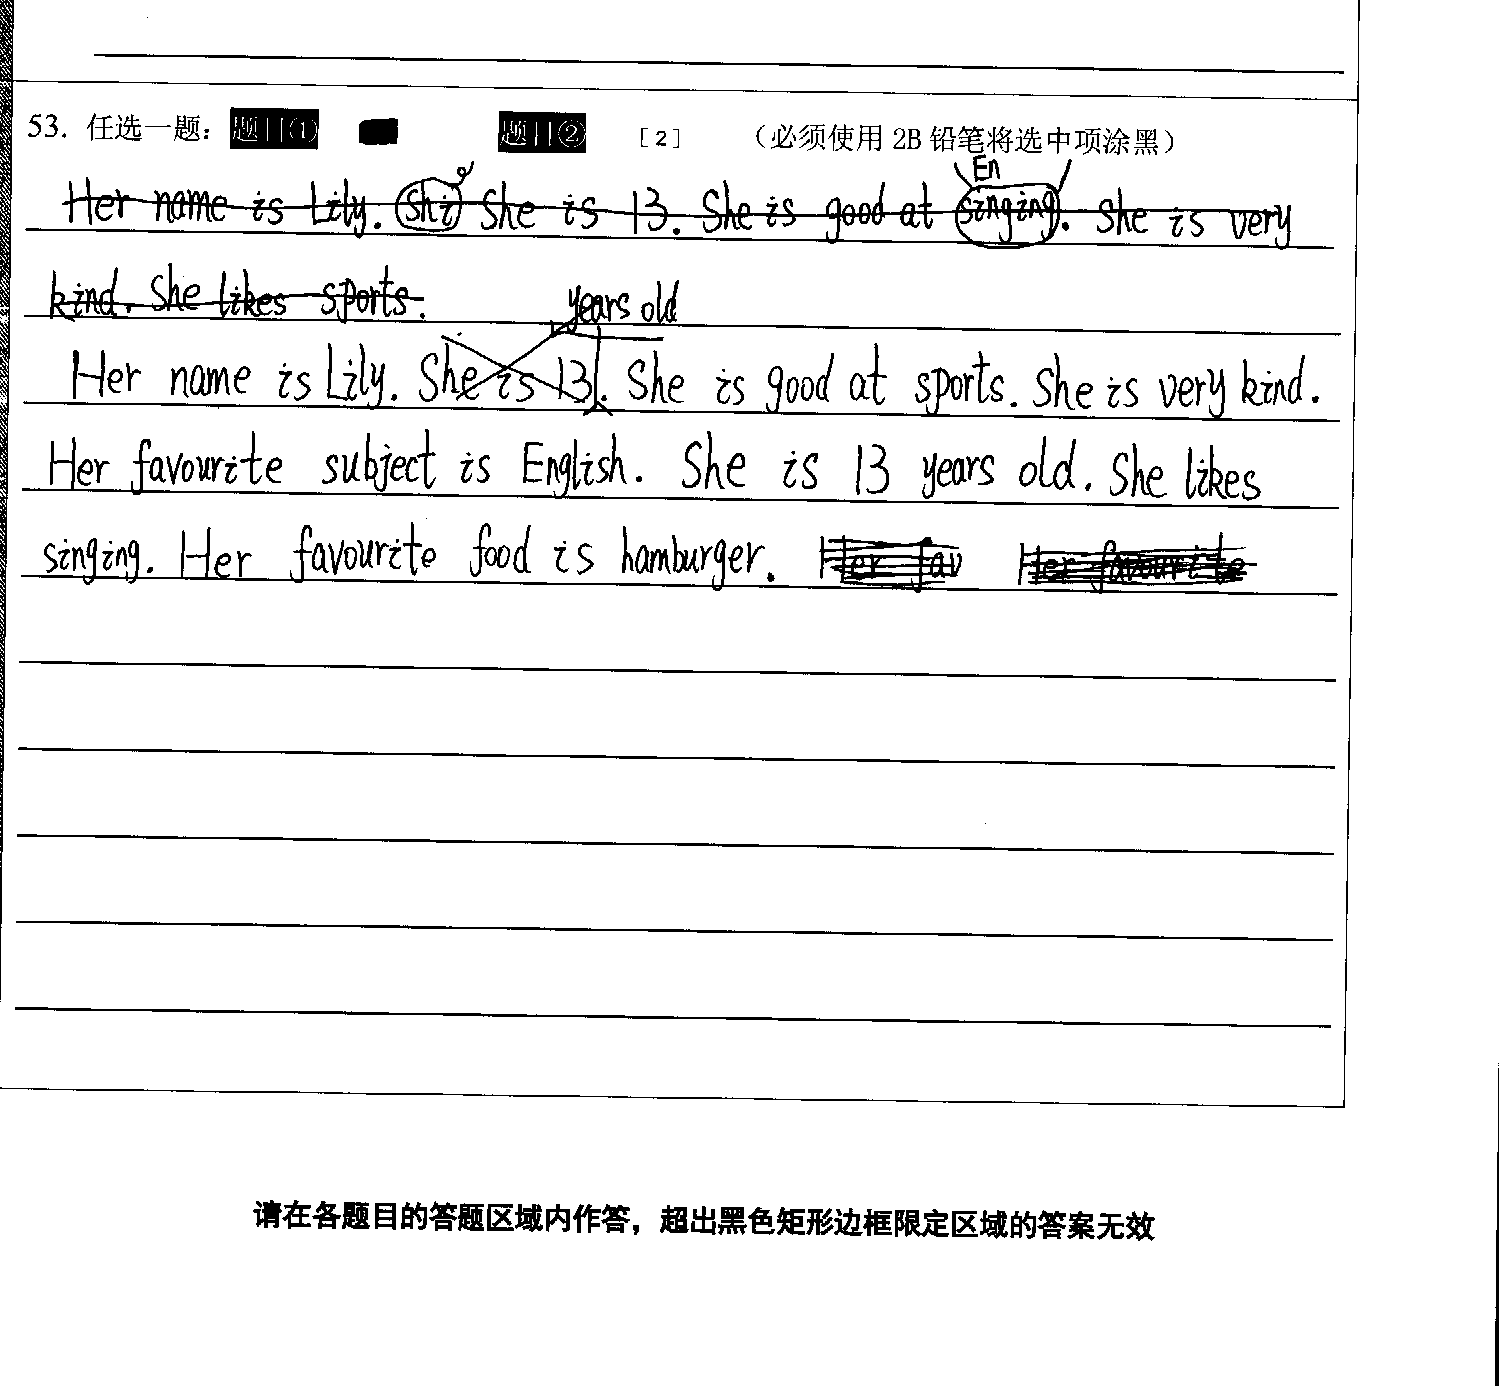 53. 任选一题： 题目① 题目② [2] （必须使用 2B 铅笔将选中项涂黑）
En
Her name is Lily. Shi She is 13. She is good at singing. She is very
kind. She likes sports.
years old
Her name is Lily. She is 13. She is good at sports. She is very kind.
Her favourite subject is English. She is 13 years old. She likes
singing. Her favourite food is hamburger. Her fav Her favourite
请在各题目的答题区域内作答，超出黑色矩形边框限定区域的答案无效